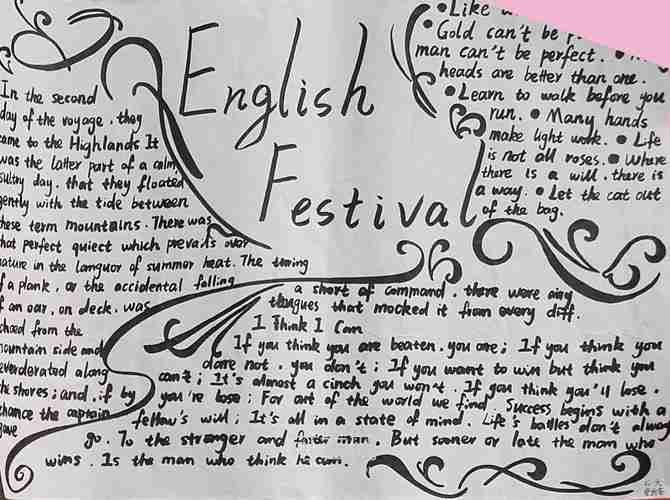 English
Festival
In the second
day of the voyage. they
came to the Highlands It
was the latter part of a calm,
sultry day. that they floated
gently with the tide between
these term mountains. There was
that perfect quiect which prevails over
nature in the languor of summer heat. The
of a plank, or the accidental falling
f an oar, on deck, was
choed from the
mountain side and
everderated along
the shores; and, if by
chance the captain
gave
a short of command. there were airy
that mocked it from every diff.
I Think I Can
If you think you are beaten. you are; If you think you
dare not. you don't; If you want to win but think you
can't; It's almost a cinch you won't. If you think you'll lose.
you're lose; For art of the world we find, Success begins with a
fellow's will; It's all in a state of mind. Life's battles don't always
go. To the stronger and faster man. But sooner or late the man who
wins. Is the man who think he can.
•Like
•Gold can't be p
man can't be perfect. •
heads are better than one.
•Learn to walk before you
run. • Many hands
make light work. • Life
is not all roses. • Where
there is a will. there is
a way. • Let the cat out
of the bag.